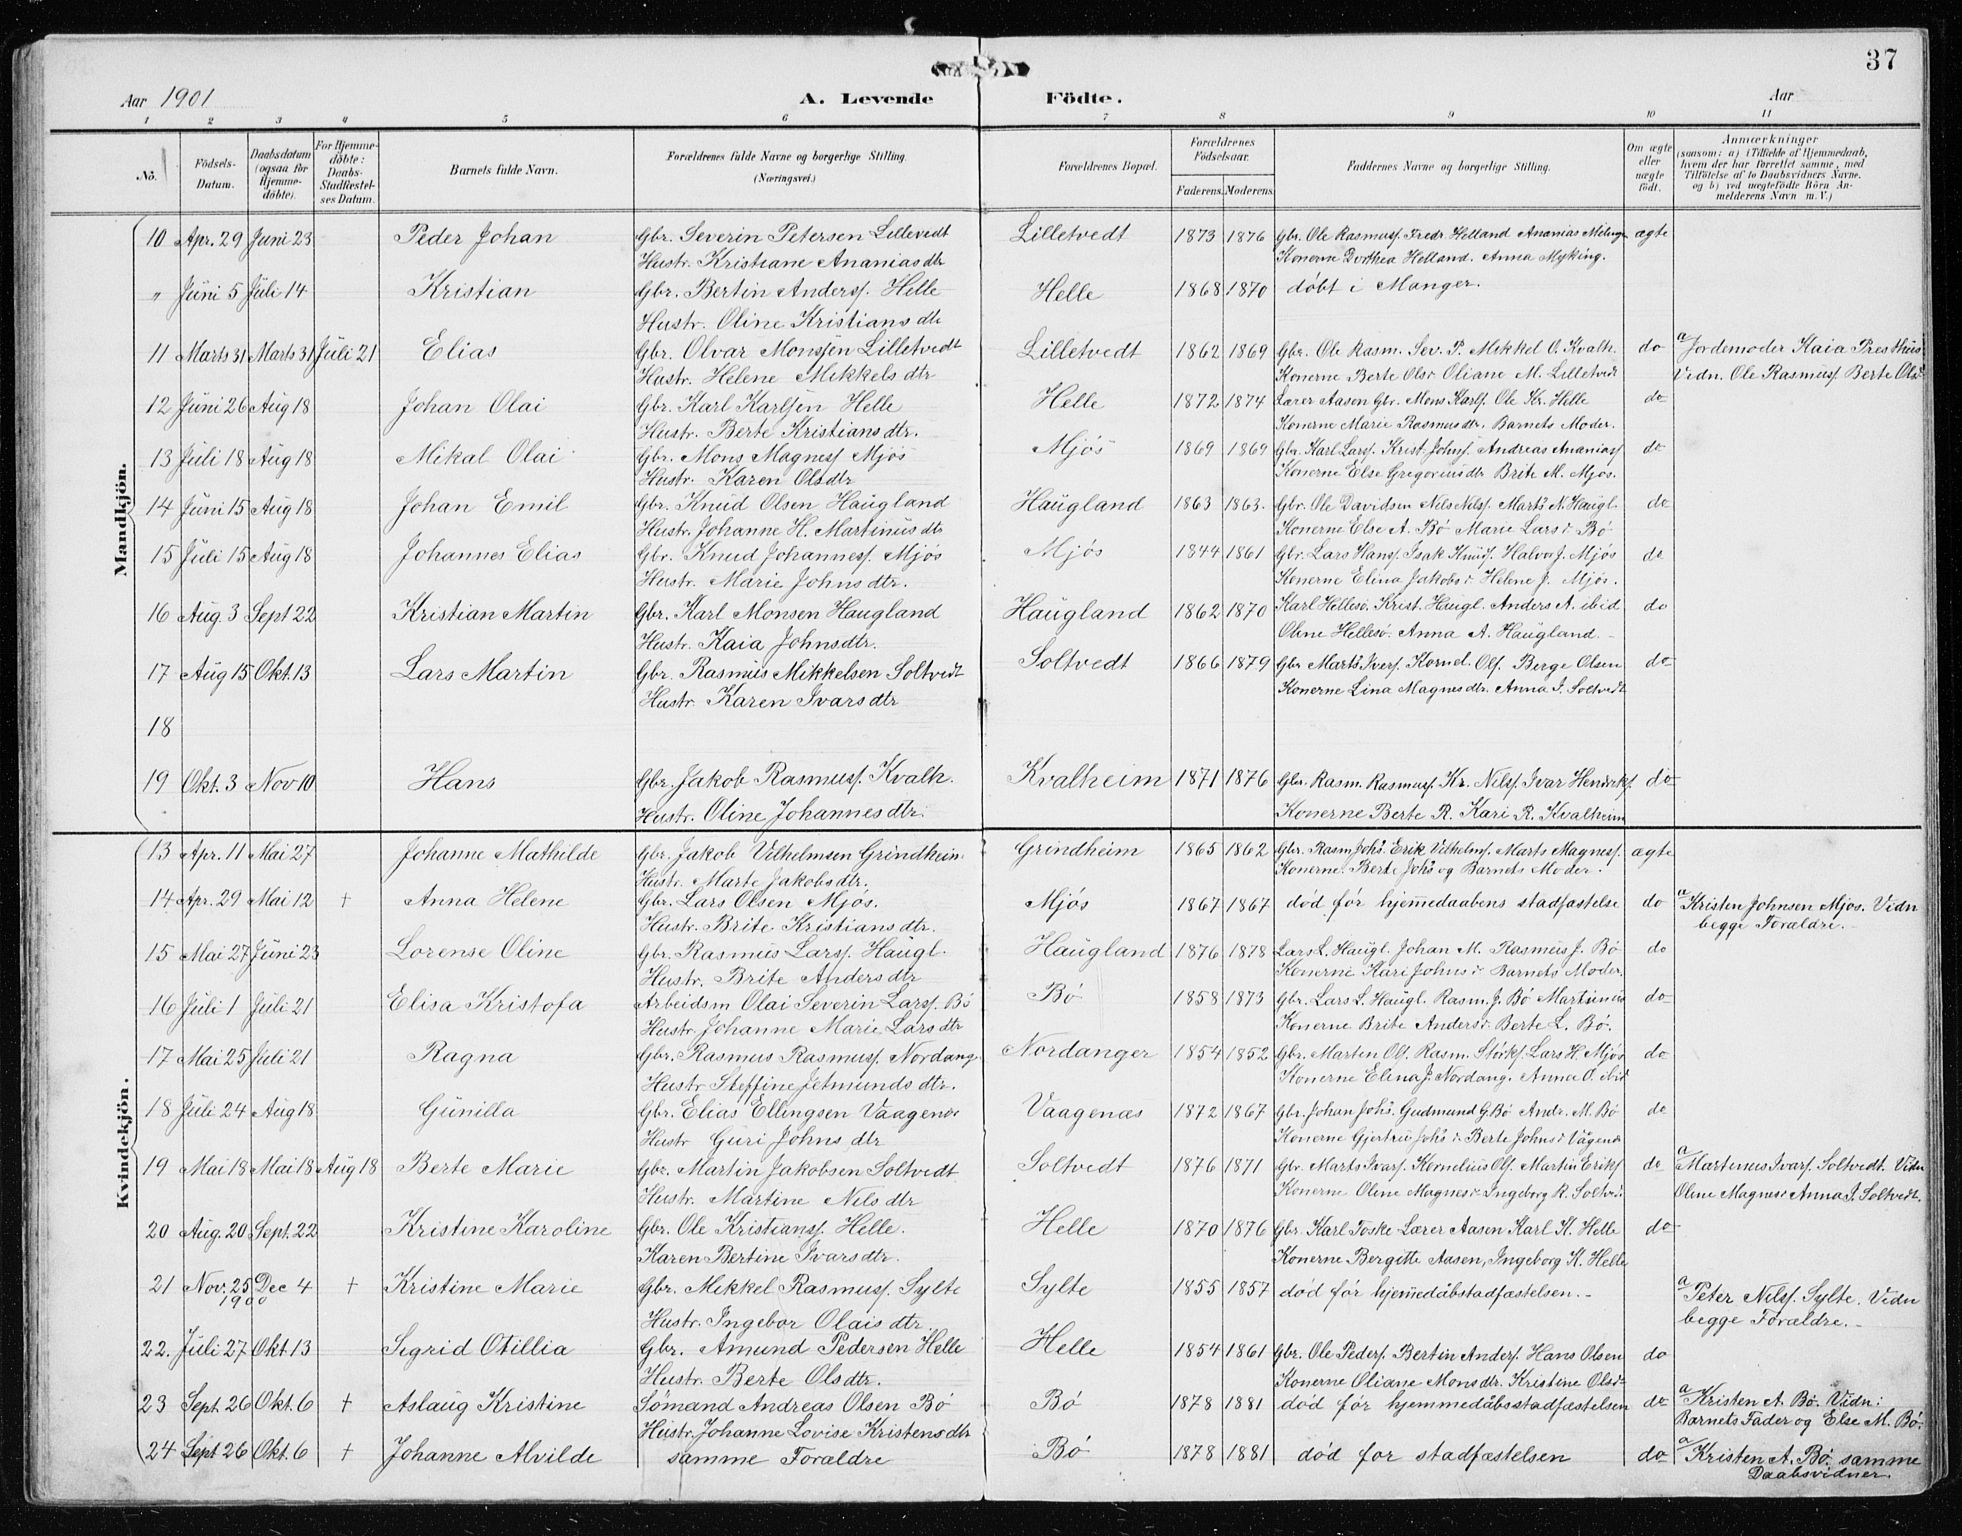 37
Aar 1901 A. Levende Födte. Aar
1 2 3 4 5 6 7 8 9 10 11
No. Födsels-Datum. Daabsdatum (ogsaa for Hjemmedöbte). For Hjemmedöbte: Daabs-Stadfæstelses Datum. Barnets fulde Navn. Forældrenes fulde Navne og borgerlige Stilling. (Næringsvei.) Forældrenes Bopæl. Forældrenes Födselsaar. Faderens. Moderens. Faddernes Navne og borgerlige Stilling. Om ægte eller uægte födt. Anmærkninger (saasom: a) i Tilfælde af Hjemmedaab, hvem der har forrettet samme, med Tilföielse af to Daabsvidners Navne. og b) ved uægtefödte Börn Anmelderens Navn m. V.)
Mandkjön.
10 Apr. 29 Juni 23 Peder Johan Gbr. Severin Petersen Lillevedt Lilletvedt 1873 1876 Gbr. Ole Rasmuss. Fredr. Helland Ananias ægte
Hustr. Kristiane Ananiasdtr Konerne Dorthea Helland. Anna Myking.
" Juni 5 Juli 14 Kristian Gbr. Bertin Anderss. Helle Helle 1868 1870 döbt i Manger.
Hustr. Oline Kristiansdtr
11 Marts 31 Marts 31 Juli 21 Elias Gbr. Olvar Monssen Lilletvedt Lilletvedt 1862 1869 Gbr. Ole Rasm. Sev. P. Mikkel O. Kvalh. do a/ Jordemoder Kaia Presthus
Hustr. Helene Mikkelsdtr Konerne Berte Olsdr Oliane M. Lilletvedt Vidn. Ole Rasmuss. Berte Olsdr
12 Juni 26 Aug 18 Johan Olai Gbr. Karl Karlsen Helle Helle 1872 1874 Lærer Aasen Gbr. Mons Karls. Ole Kr. Helle do
Hustr. Berte Kristiansdtr. Konerne Marie Rasmusdtr. Barnets Moder.
13 Juli 18 Aug 18 Mikal Olai Gbr. Mons Magness Mjös Mjös 1869 1869 Gbr. Karl Larss. Krist. Johns. Andreas Ananiass do
Hustr. Karen Olsdtr Konerne Else Gregoriusdtr Brite M. Mjös.
14 Juni 15 Aug 18 Johan Emil Gbr. Knud Olsen Haugland Haugland 1863 1863. Gbr. Ole Davidsen Nels Nelss. Marts N. Haugl. do
Hustr. Johanne H. Martinusdtr Konerne Else A. Bö Marie Larsdr Bö
15 Juli 15 Aug 18 Johannes Elias Gbr. Knud Johanness. Mjös Mjös 1844 1861 Gbr. Lars Hanss. Isak Knuds. Halvor J. Mjös do
Hustr. Marie Johnsdtr. Konerne Elina Jakobsdr Helene J. Mjös.
16 Aug. 3 Sept 22 Kristian Martin Gbr. Karl Monsen Haugland Haugland 1862 1870 Karl Hellesö. Krist. Haugl. Anders A. ibid. do
Hustr. Kaia Johnsdtr. Oline Hellesö. Anna A. Haugland.
17 Aug 15 Okt. 13 Lars Martin Gbr. Rasmus Mikkelsen Soltvedt Soltvedt 1866 1879 Gbr Marts Ivers. Kornel. Ols. Berge Olsen do
Hustr. Karen Ivarsdtr Konerne Lina Magnesdtr. Anna I. Soltvedt
18
19 Okt. 3 Nov 10 Hans Gbr. Jakob Rasmuss. Kvalh. Kvalheim 1871 1876 Gbr. Rasm. Rasmuss. Kr. Nilss. Ivar Henriks. do
Hustr. Oline Johannesdtr. Konerne Berte R. Kari R. Kvalheim
Kvindekjön.
13 Apr. 11 Mai 27 Johanne Mathilde Gbr. Jakob Vilhelmsen Grindheim Grindheim 1865 1862 Gbr. Rasm Johs. Erik Vilhelms. Marts Magness. ægte
Hustr. Marte Jakobsdtr. Konerne: Berte Johs og Barnets Moder.
14 Apr. 29 Mai 12 + Anna Helene Gbr. Lars Olsen Mjös. Mjös 1867 1867 död för hjemmedaabens stadfæstelse do a/ Kristen Johnsen Mjös. Vidn
Hustr. Brite Kristiansdtr. begge Forældre.
15 Mai 27 Juni 23 Lorense Oline Gbr. Rasmus Larss. Haugl. Haugland 1876 1878 Lars L. Haugl. Johan M. Rasmus J. Bö do
Hustr. Brite Andersdtr Konerne Kari Johnsdr Barnets Moder.
16 Juli 1 Juli 21 Elisa Kristofa Arbeidsm Olai Severin Larss. Bö Bö 1858 1873 Gbr. Lars L. Haugl. Rasm. J. Bö Martinus do
Hustr. Johanne Marie Larsdtr Konerne Brite Andersdr Berte L. Bö.
17 Mai 25 Juli 21 Ragna Gbr. Rasmus Rasmuss. Nordang. Nordanger 1854 1852 Gbr. Marten Ols. Rasm. Störks. Lars H. Mjös do
Hustr Steffine Jetmundsdtr. Konerne Elena J. Nordang. Anna O. ibid
18 Juli 24 Aug 18 Gunilla Gbr. Elias Ellingsen Vaagenæs Vaagenæs 1872 1867 Gbr. Johan Johs. Gudmund G. Bö Andr. M. Bö do
Hustr Guri Johnsdtr Konerne Gjertru Johs dr Berte Johnsdr Vågenæs
19 Mai 18 Mai 18 Aug 18 Berte Marie Gbr. Martin Jakobsen Soltvedt Soltvedt 1876 1871 Gbr. Marts Ivars. Kornelius Ols. Martin Eriks do a/ Martenus Ivars. Soltvedt. Vidn
Hustr. Martine Nelsdtr Konerne Oline Magnesdr Ingeborg R. Soltv. Oline Magnesdr Anna I. Soltvedt.
20 Aug. 20 Sept. 22 Kristine Karoline Gbr. Ole Kristianss. Helle. Helle 1870 1876 Gbr. Karl Toske Lærer Aasen Karl K. Helle do
Karen Bertine Ivarsdtr. Konerne Bergitte Aasen, Ingeborg K. Helle
21 Nov. 25 1900 Dec 4 + Kristine Marie Gbr. Mikkel Rasmuss. Sylte Sylte 1855 1857 död för hjemmedåbstadfæstelsen. a/ Peter Nilss. Sylte. Vidn
Hustr. Ingebor Olaisdtr. begge Forældre.
22. Juli 27 Okt. 13 Sigrid Otillia Gbr. Amund Pedersen Helle Helle 1854 1861 Gbr. Ole Peders. Bertin Anders. Hans Olsen do
Hustr. Berte Olsdtr. Konerne Oliane Monsdr. Kristine Olsdr
23 Sept. 26 Okt. 6 + Aslaug Kristine Sömand Andreas Olsen Bö Bö 1878 1881 död för hjemmedåbsstadfæstelsen do a/ Kristen A. Bö. Vidn:
Hustr. Johanne Lovise Kristensdtr Barnets Fader og Else M. Bö.
24 Sept 26 Okt. 6 + Johanne Alvilde samme Forældre Bö 1878 1881 död for stadfæstelsen do a/ Kristen A. Bö. samme
Daabsvidner.